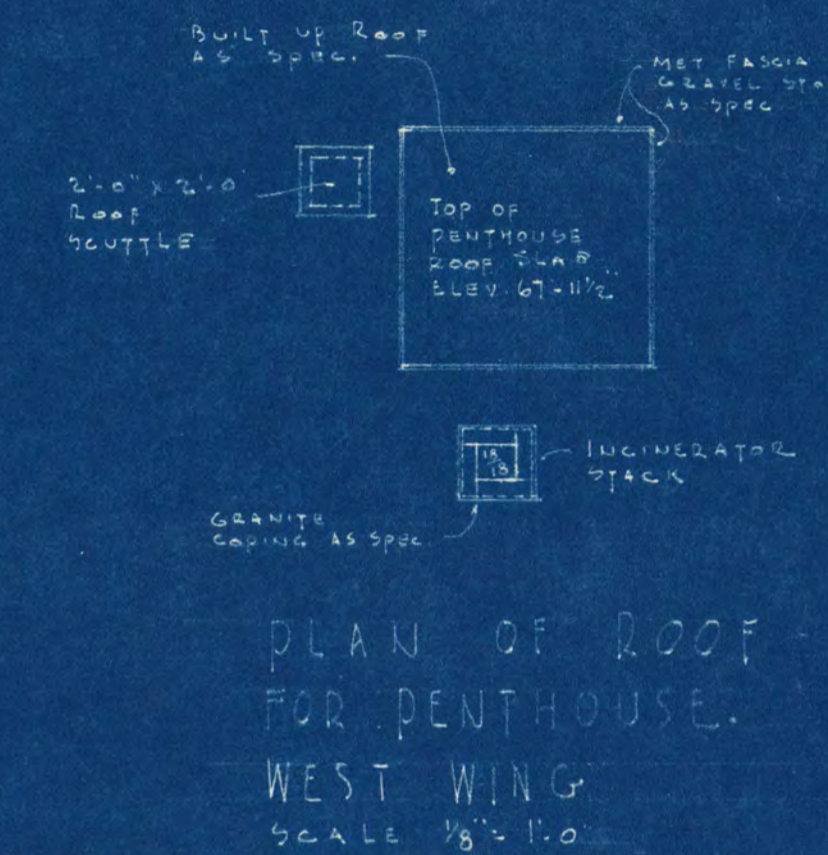 BUILT UP ROOF
AS SPEC.
MET FASCIA
GRAVEL STO
AS SPEC
2'-0" x 2'-0"
ROOF
SCUTTLE
TOP OF
PENTHOUSE
ROOF SLAB
ELEV. 67'-11½"
18
18
INCINERATOR
STACK
GRANITE
COPING AS SPEC
PLAN OF ROOF
FOR PENTHOUSE.
WEST WING
SCALE ⅛" = 1'-0"